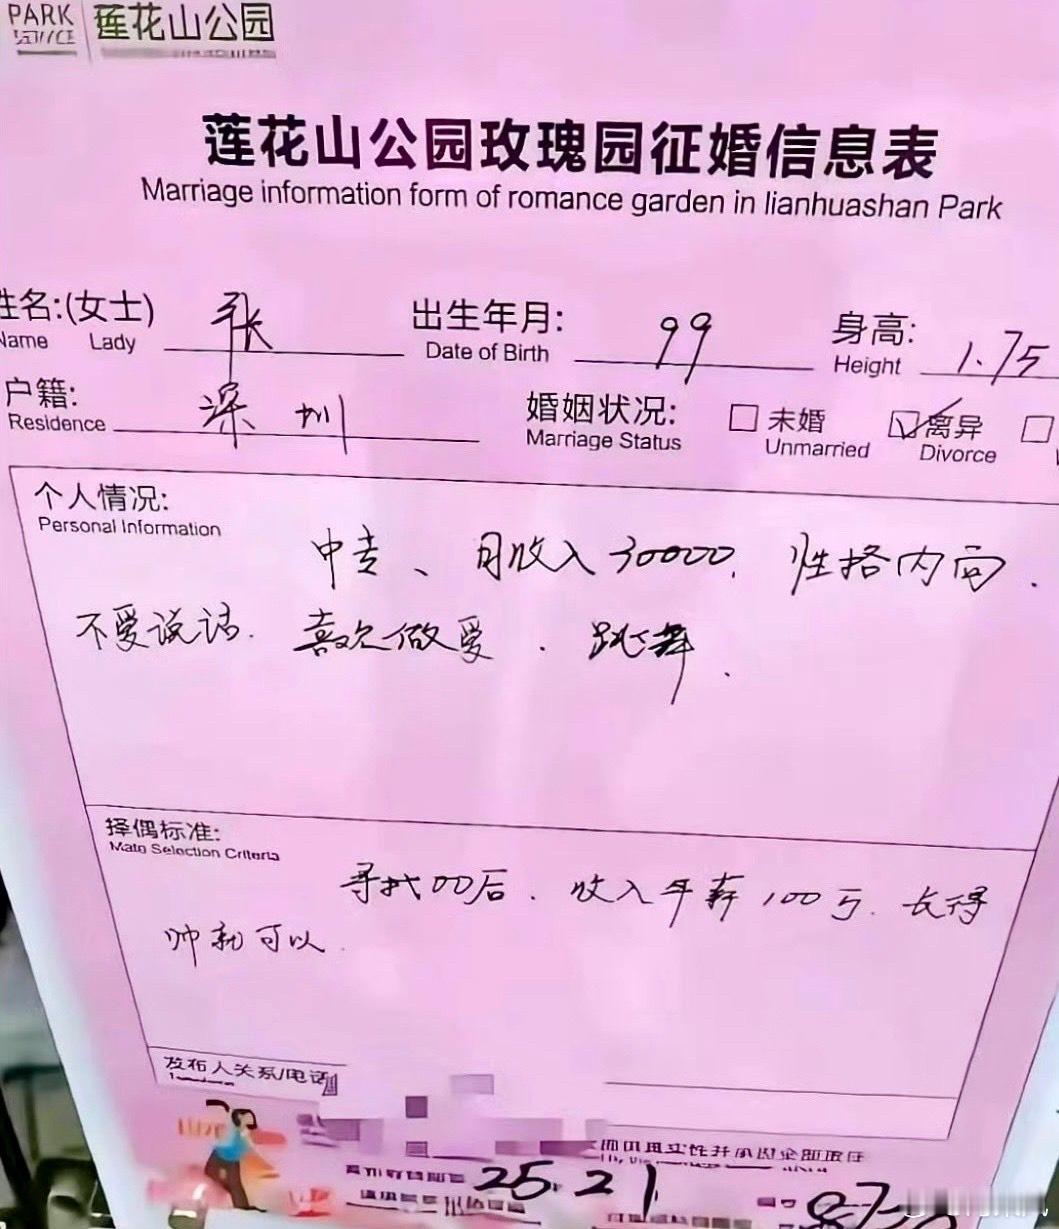 PARK 莲花山公园
莲花山公园玫瑰园征婚信息表
Marriage information form of romance garden in lianhuashan Park
姓名:(女士) 张 出生年月: 99 身高: 1.75
Name Lady Date of Birth Height
户籍: 深圳 婚姻状况: □ 未婚 ☑ 离异 □
Residence Marriage Status Unmarried Divorce
个人情况:
Personal Information
中专、月收入30000. 性格内向.
不爱说话. 喜欢做爱. 跳舞.
择偶标准:
Mate Selection Criteria
寻找00后. 收入年薪100万. 长得
帅就可以.
发布人关系/电话
25.21